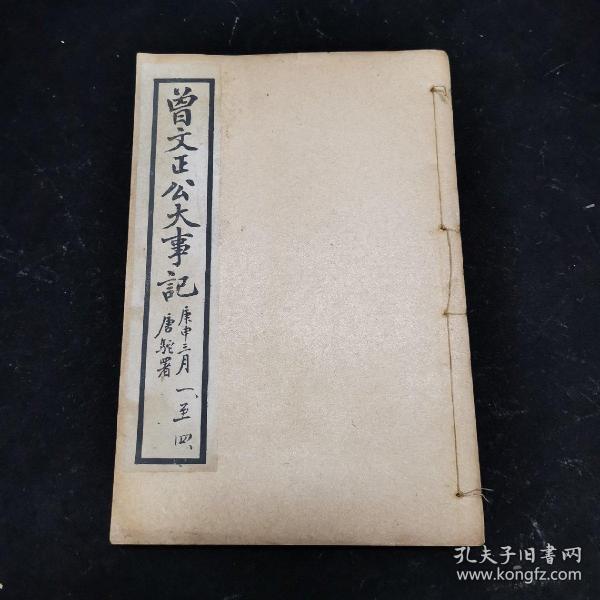 曾文正公大事記
庚申三月
唐駝署
一至四
孔夫子旧書网
www.kongfz.com